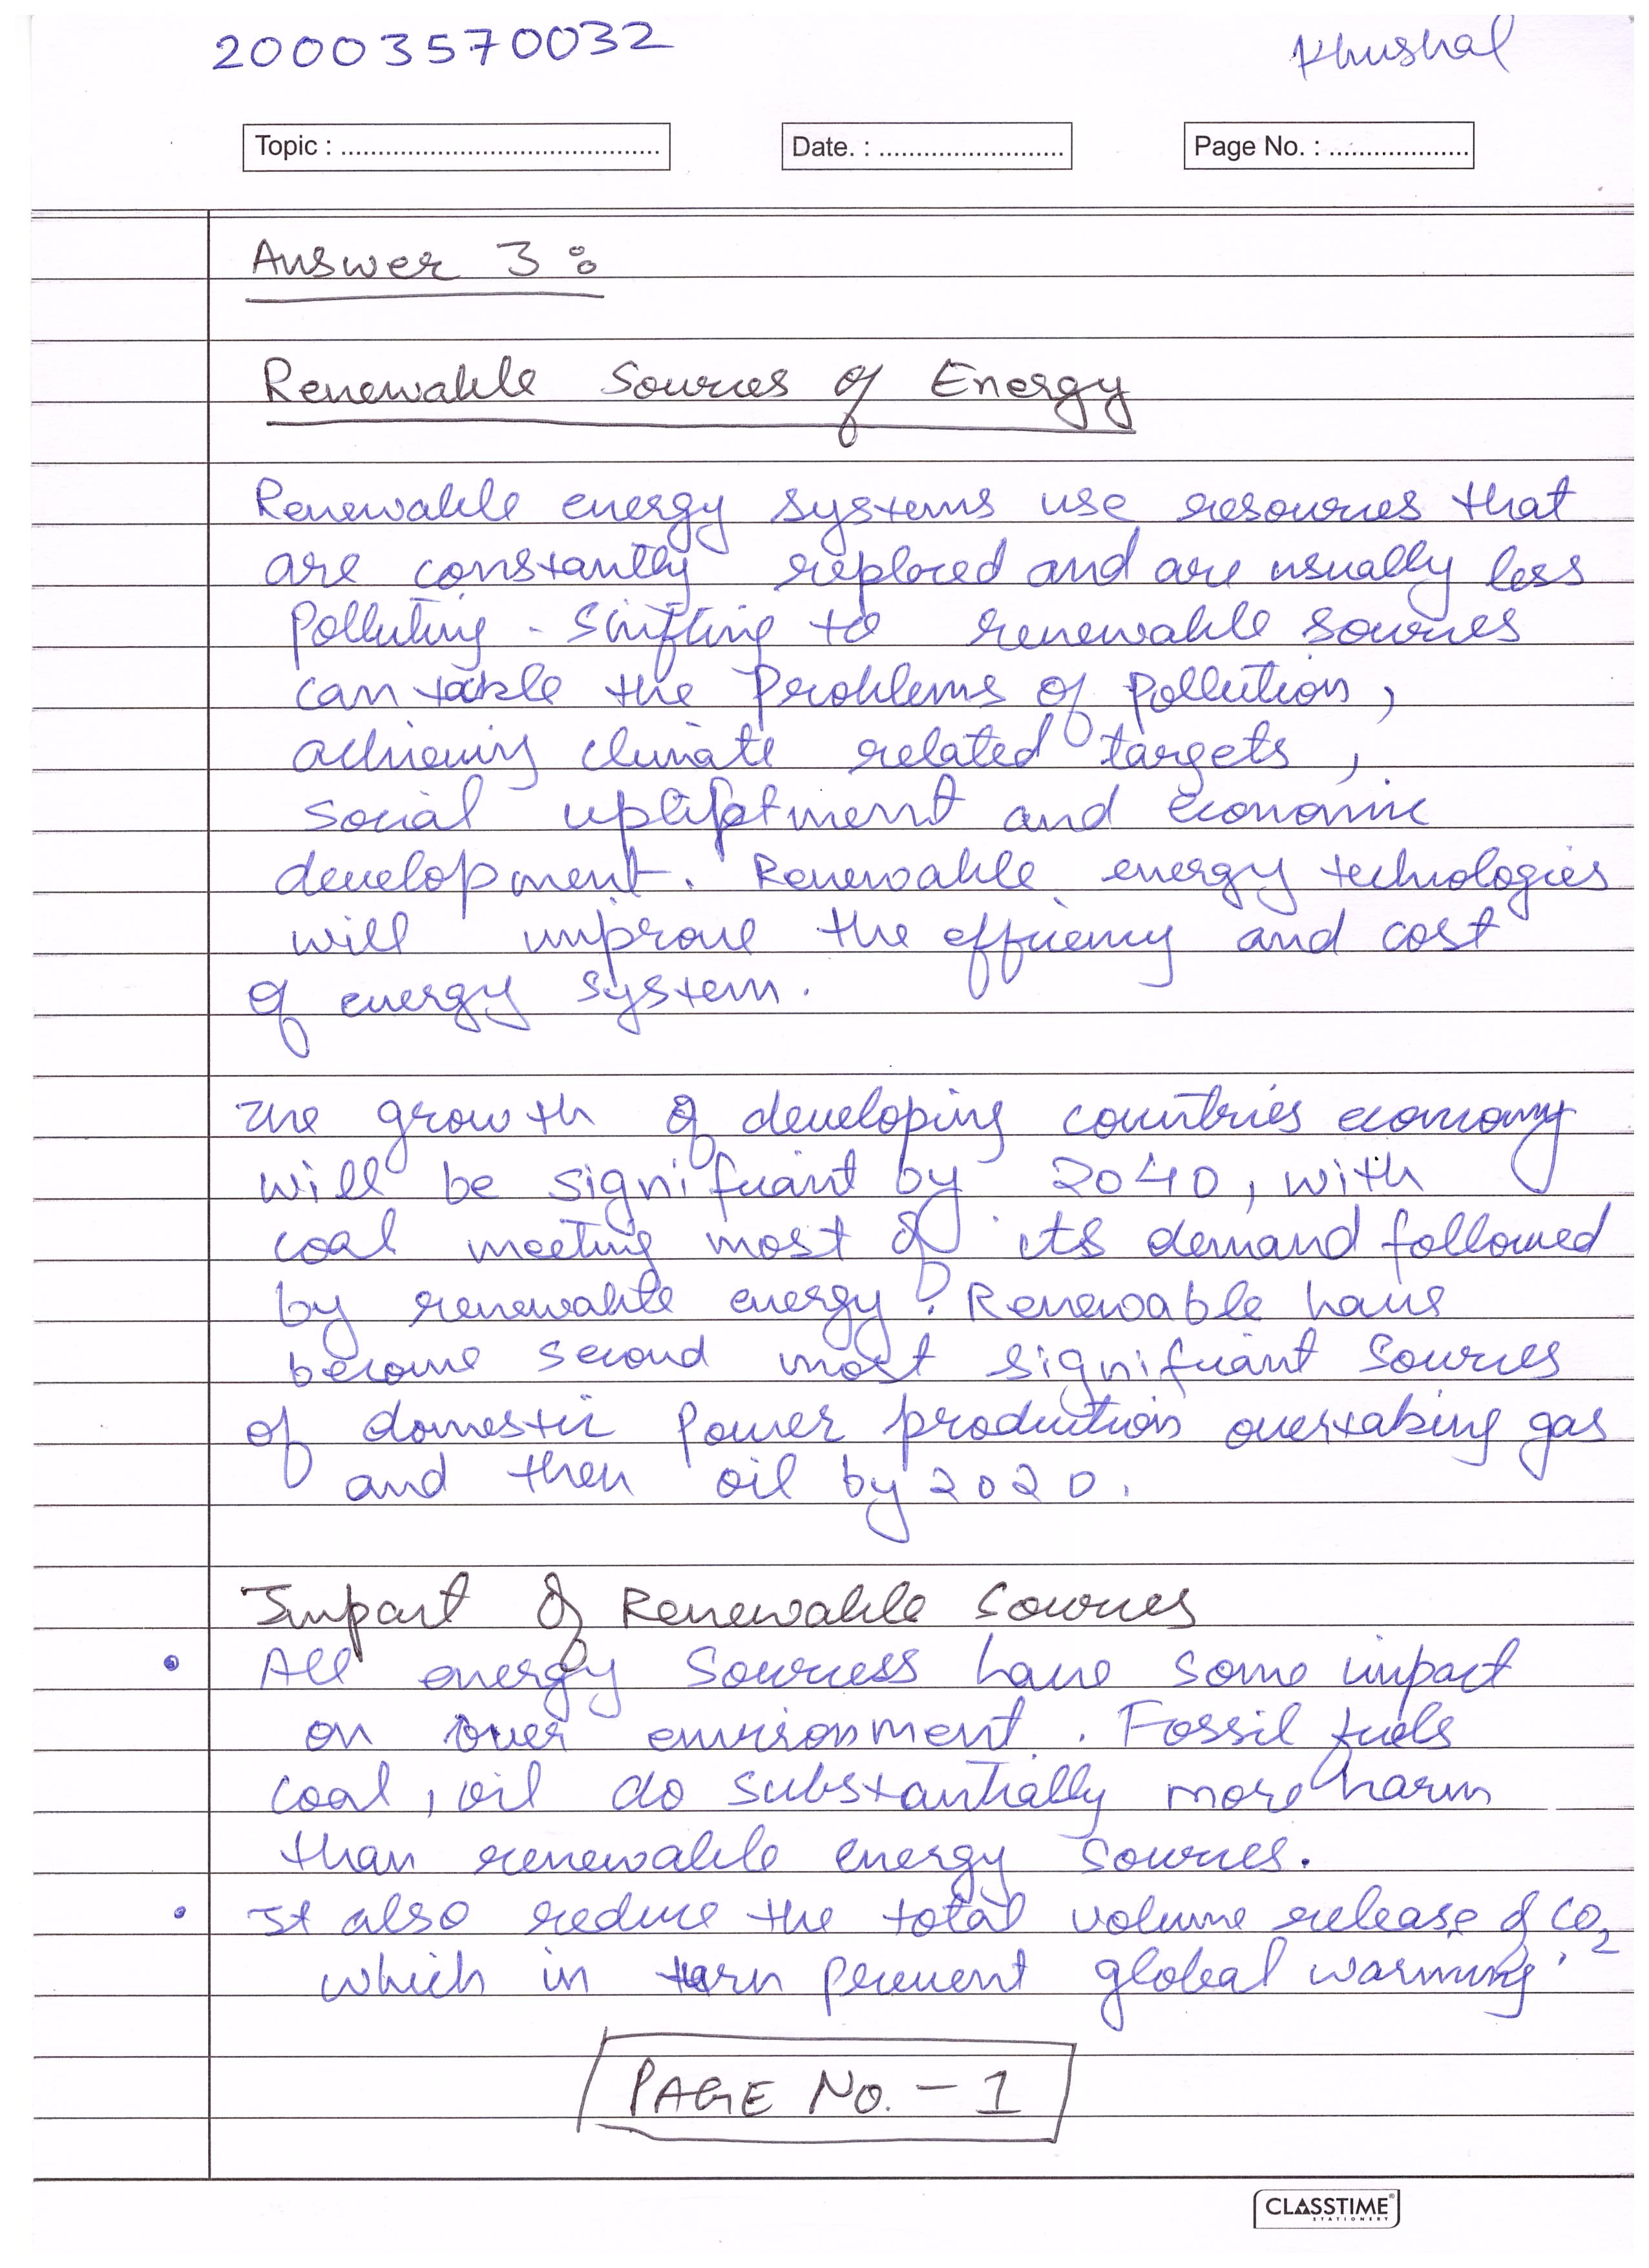 20003570032 Khushal
Topic : ........................................... Date. : ......................... Page No. : ...................
Answer 3 :
Renewable Sources of Energy
Renewable energy systems use resources that
are constantly replaced and are usually less
polluting. Shifting to renewable sources
can takle the problems of pollution,
achieving climate related targets,
social upliftment and economic
development. Renewable energy technologies
will improve the efficiency and cost
of energy system.
The growth of developing countries economy
will be significant by 2040, with
coal meeting most of its demand followed
by renewable energy. Renewable have
become second most significant sources
of domestic power production overtaking gas
and then oil by 2020.
Impact of Renewable Sources
• All energy sourcess have some impact
on over environment. Fossil fuels
coal, oil do substantially more harm
than renewable energy sources.
• It also reduce the total volume release of CO2
which in turn prevent global warming.
PAGE NO. - 1
CLASSTIME
STATIONERY